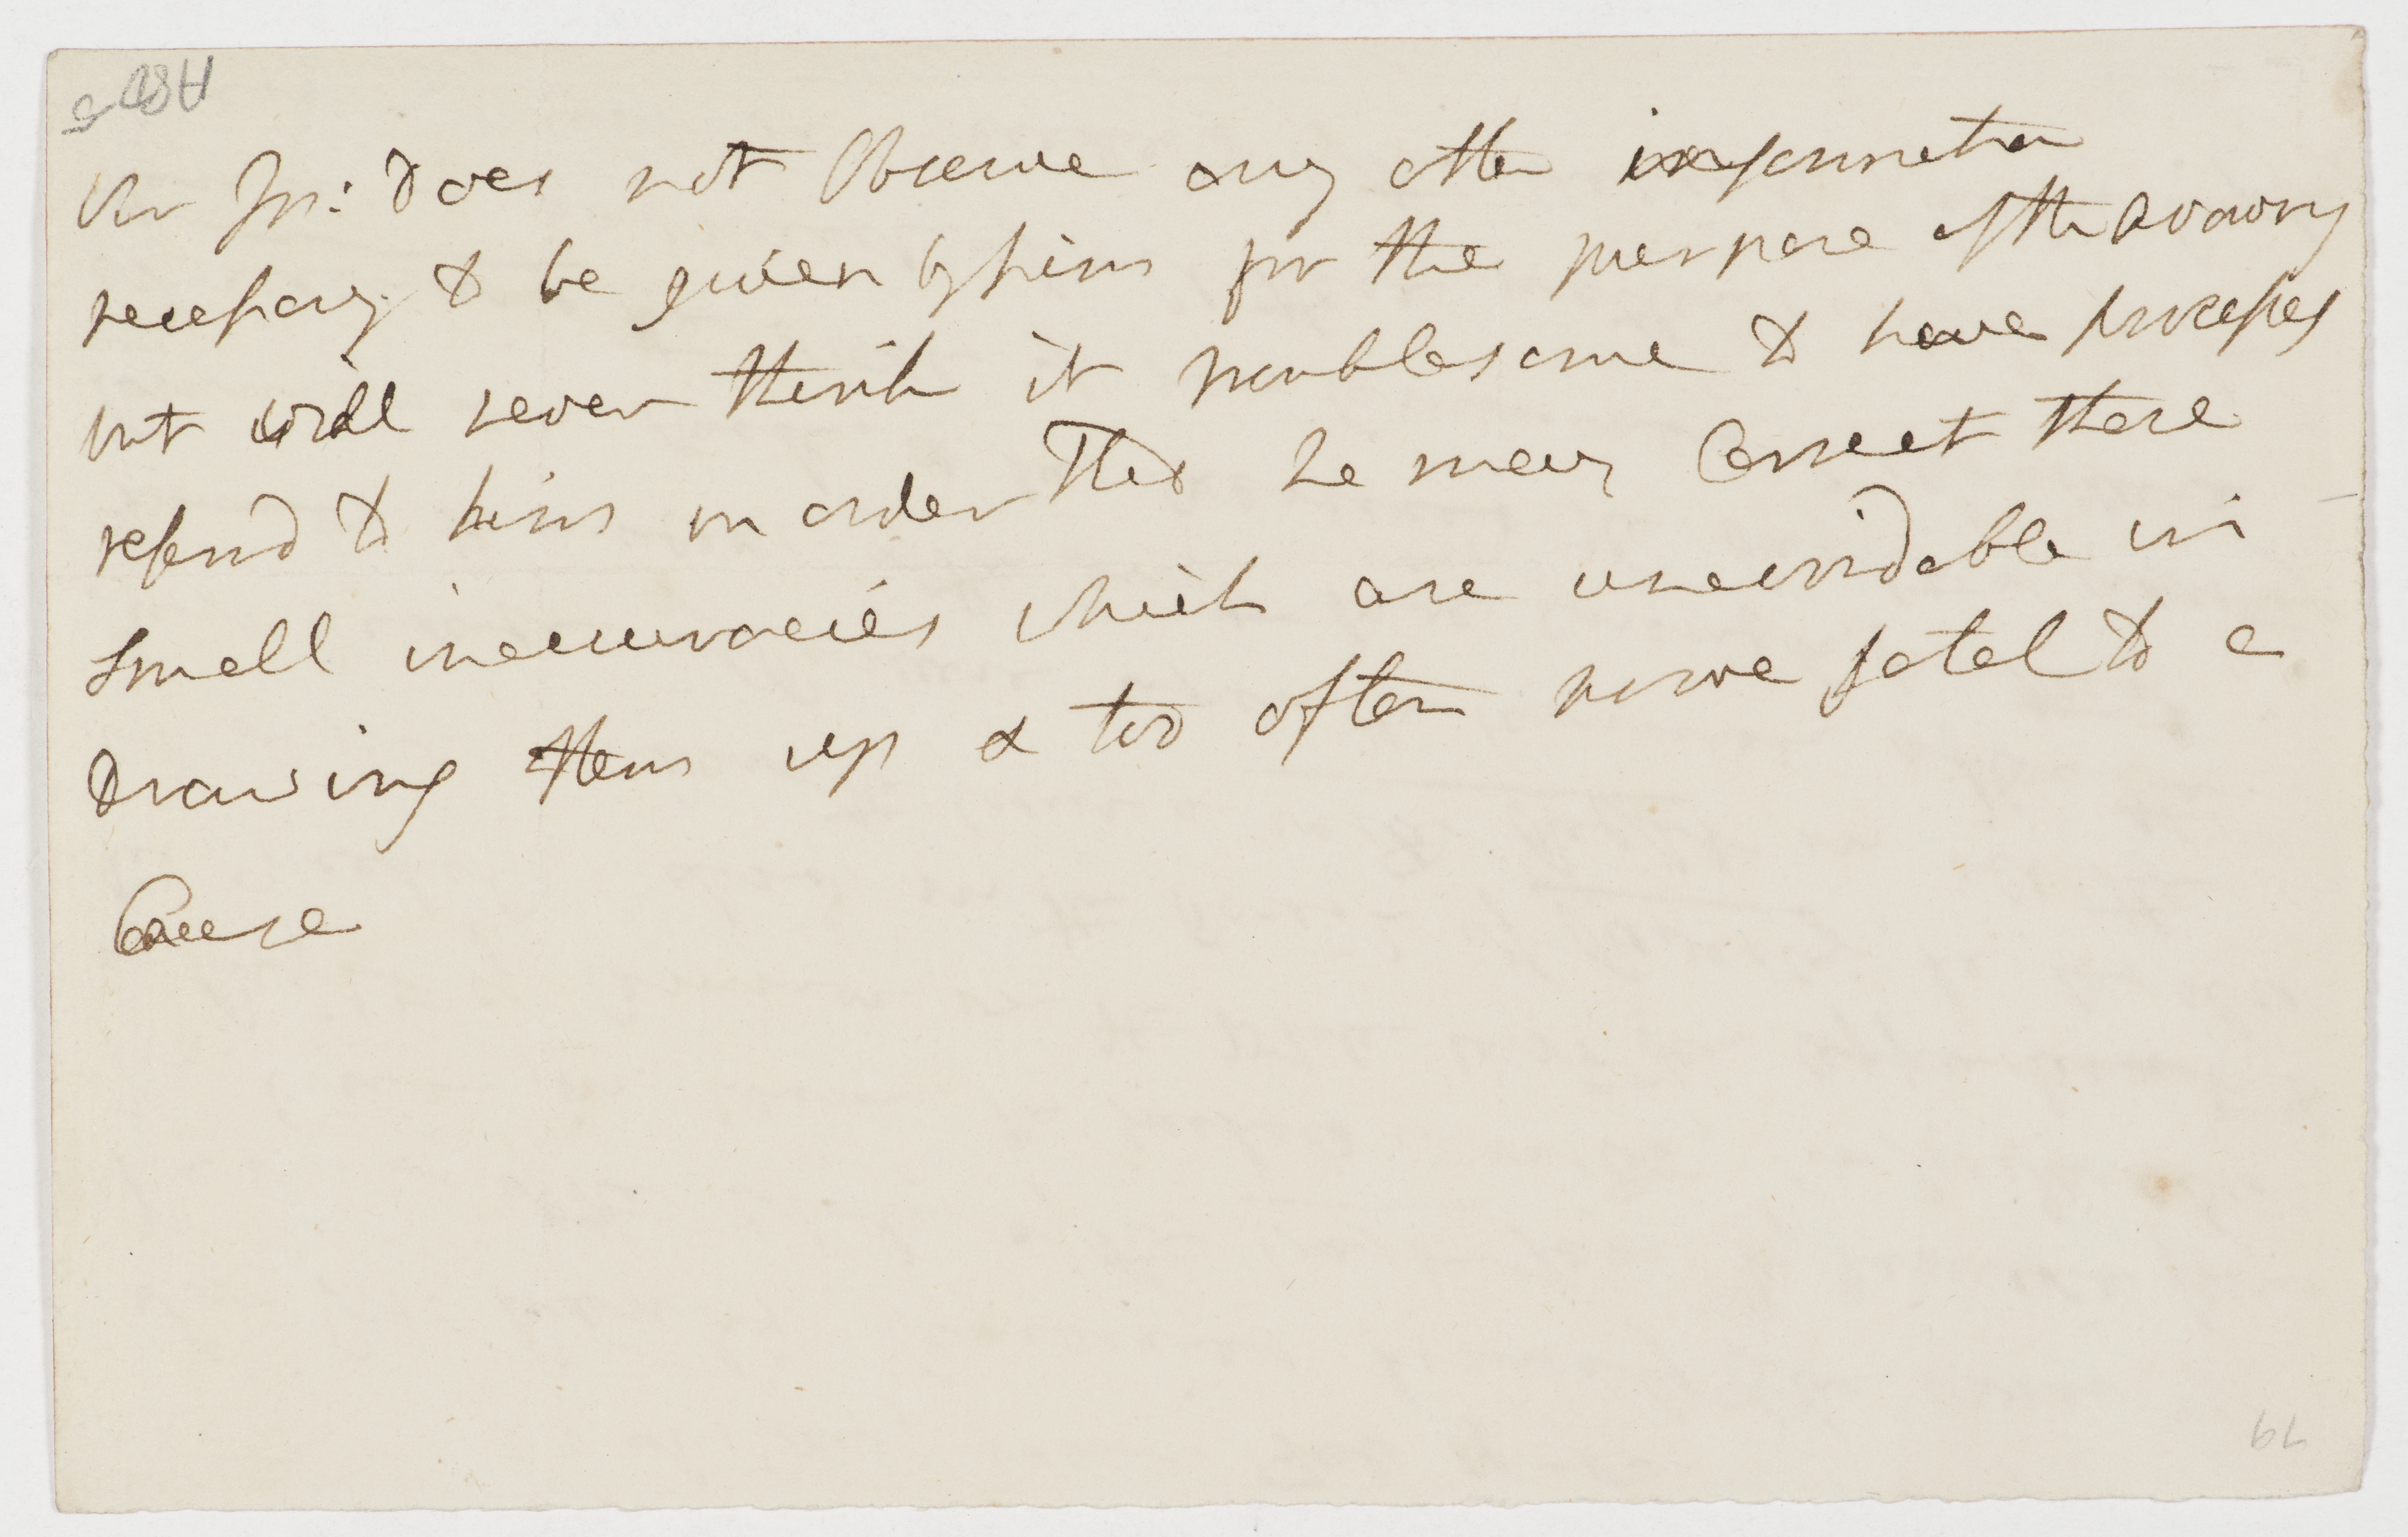 Mr Jn: Does not Observe any other information
necessary to be given by him for the purpose of the Drawing
but will never think it troublesome to have processes
refer'd to him in order that he may Correct these
small inaccuracies which are unavoidable in
Drawing them up & too often prove fatal to a
Cause
79